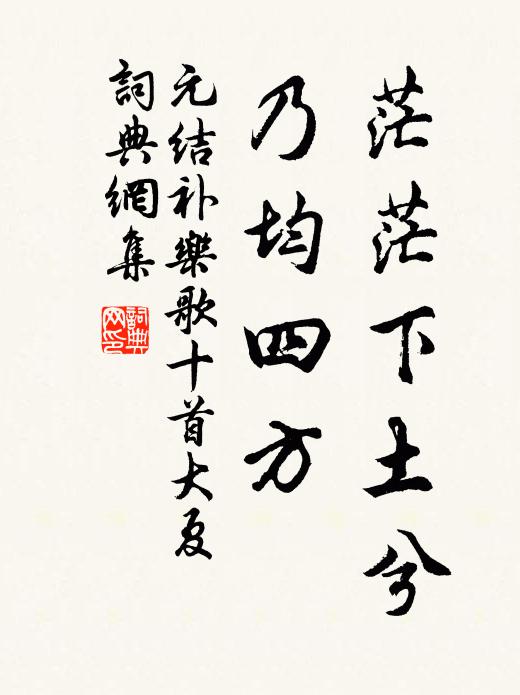 茫茫下土兮
乃均四方
元结补樂歌十首大夏
詞典網集
詞典网印